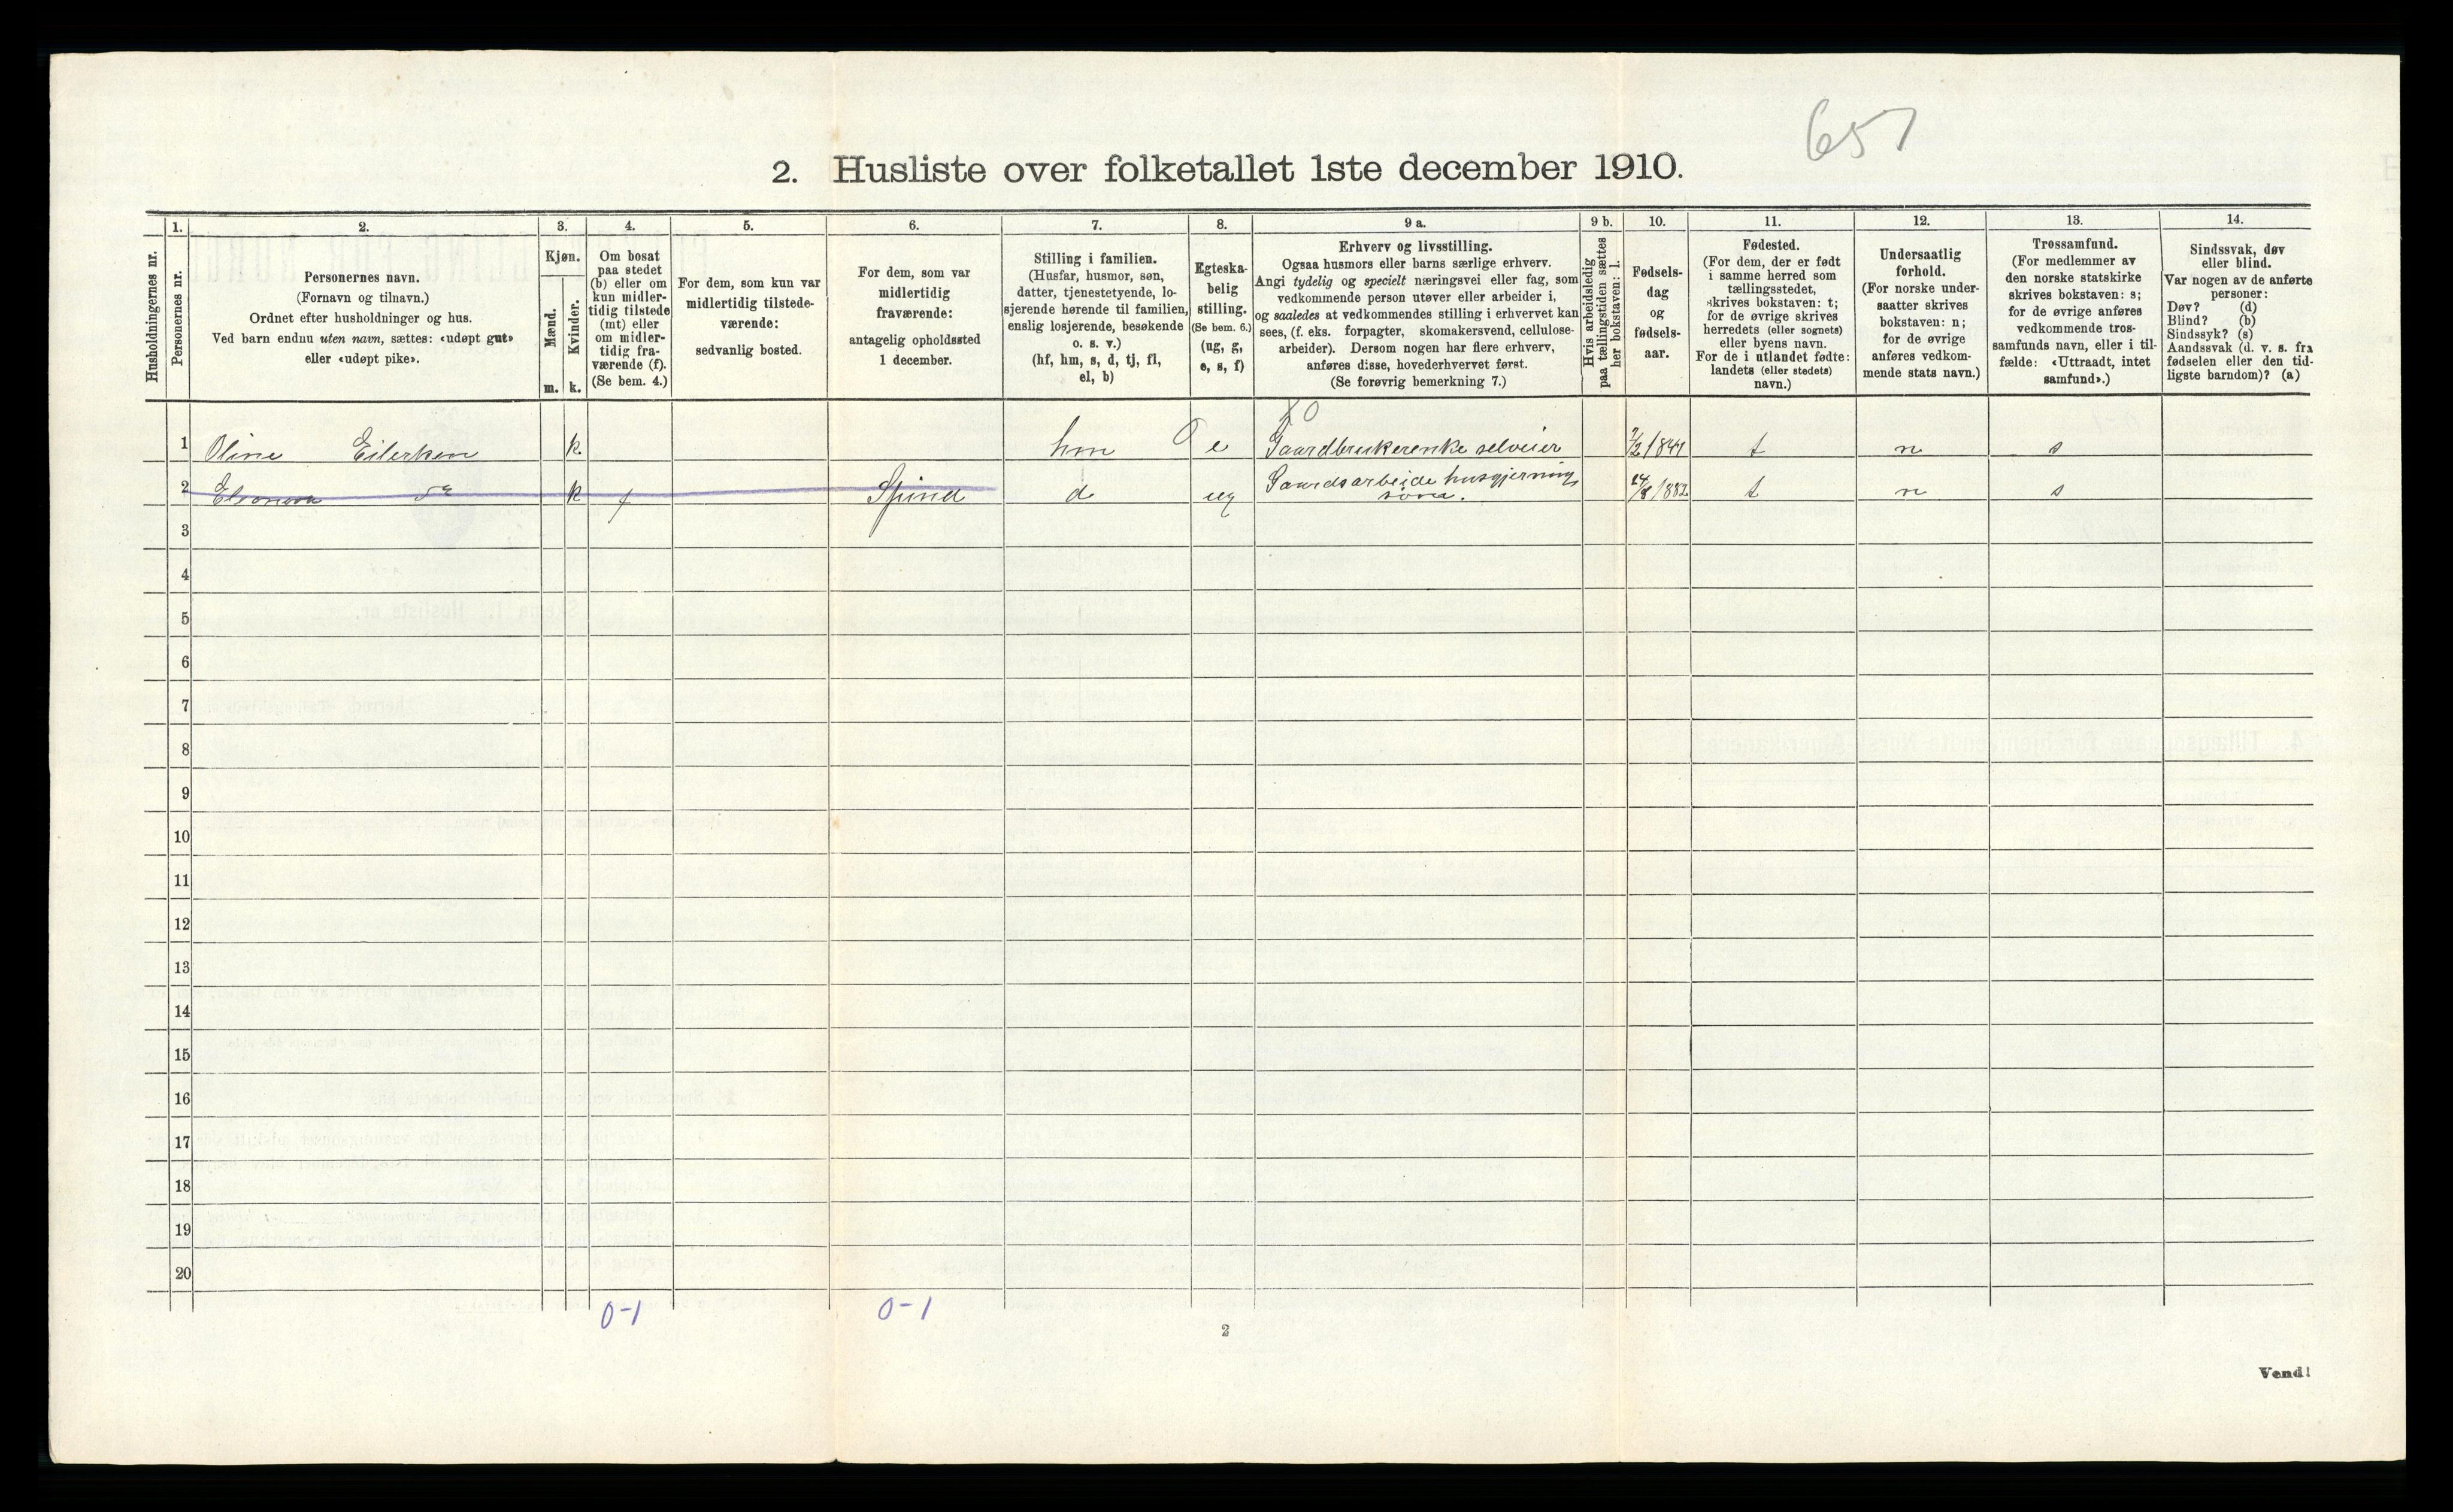 651
2. Husliste over folketallet 1ste december 1910.
Husholdningernes nr.
1.
Personernes nr.
2.
Personernes navn.
(Fornavn og tilnavn.)
Ordnet efter husholdninger og hus.
Ved barn endnu uten navn, sættes: «udøpt gut»
eller «udøpt pike».
3.
Kjøn.
Mænd.
m.
Kvinder.
k.
4.
Om bosat
paa stedet
(b) eller om
kun midler-
tidig tilstede
(mt) eller
om midler-
tidig fra-
værende (f).
(Se bem. 4.)
5.
For dem, som kun var
midlertidig tilstede-
værende:
sedvanlig bosted.
6.
For dem, som var
midlertidig
fraværende:
antagelig opholdssted
1 december.
7.
Stilling i familien.
(Husfar, husmor, søn,
datter, tjenestetyende, lo-
sjerende hørende til familien,
enslig losjerende, besøkende
o. s. v.)
(hf, hm, s, d, tj, fl,
el, b)
8.
Egteska-
belig
stilling.
(Se bem. 6.)
(ug, g,
e, s, f)
9 a.
Erhverv og livsstilling.
Ogsaa husmors eller barns særlige erhverv.
Angi tydelig og specielt næringsvei eller fag, som
vedkommende person utøver eller arbeider i,
og saaledes at vedkommendes stilling i erhvervet kan
sees, (f. eks. forpagter, skomakersvend, cellulose-
arbeider). Dersom nogen har flere erhverv,
anføres disse, hovederhvervet først.
(Se forøvrig bemerkning 7.)
9 b.
Hvis arbeidsledig
paa tællingstiden sættes
her bokstaven: l.
10.
Fødsels-
dag
og
fødsels-
aar.
11.
Fødested.
(For dem, der er født
i samme herred som
tællingsstedet,
skrives bokstaven: t;
for de øvrige skrives
herredets (eller sognets)
eller byens navn.
For de i utlandet fødte:
landets (eller stedets)
navn.)
12.
Undersaatlig
forhold.
(For norske under-
saatter skrives
bokstaven: n;
for de øvrige
anføres vedkom-
mende stats navn.)
13.
Trossamfund.
(For medlemmer av
den norske statskirke
skrives bokstaven: s;
for de øvrige anføres
vedkommende tros-
samfunds navn, eller i til-
fælde: «Uttraadt, intet
samfund».)
14.
Sindssvak, døv
eller blind.
Var nogen av de anførte
personer:
Døv? (d)
Blind? (b)
Sindssyk? (s)
Aandssvak (d. v. s. fra
fødselen eller den tid-
ligste barndom)? (a)
1 Oline Eilersen k. hm e Gaardbrukerenke selveier t n s
2 k f Spind d ug Gaardsarbeide husgjerning 24/8 1882 t n s
3
4
5
6
7
8
9
10
11
12
13
14
15
16
17
18
19
20
0-1 0-1
2
Vend!